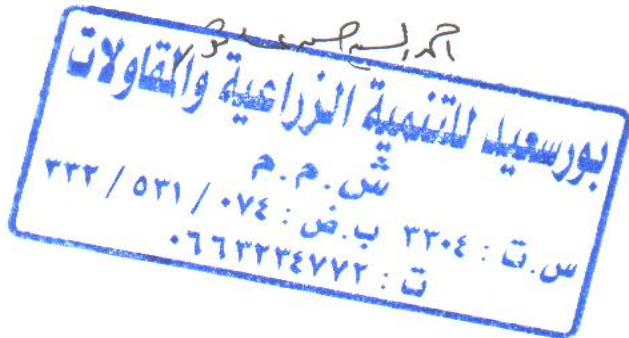 احمد السيد حسين
بورسعيد للتنمية الزراعية والمقاولات
ش.م.م
س.ت : ٣٣٠٤ ب.ض : ٠٧٤ / ٥٣١ / ٣٣٢
ت : ٠٦٦٣٢٣٤٧٧٢